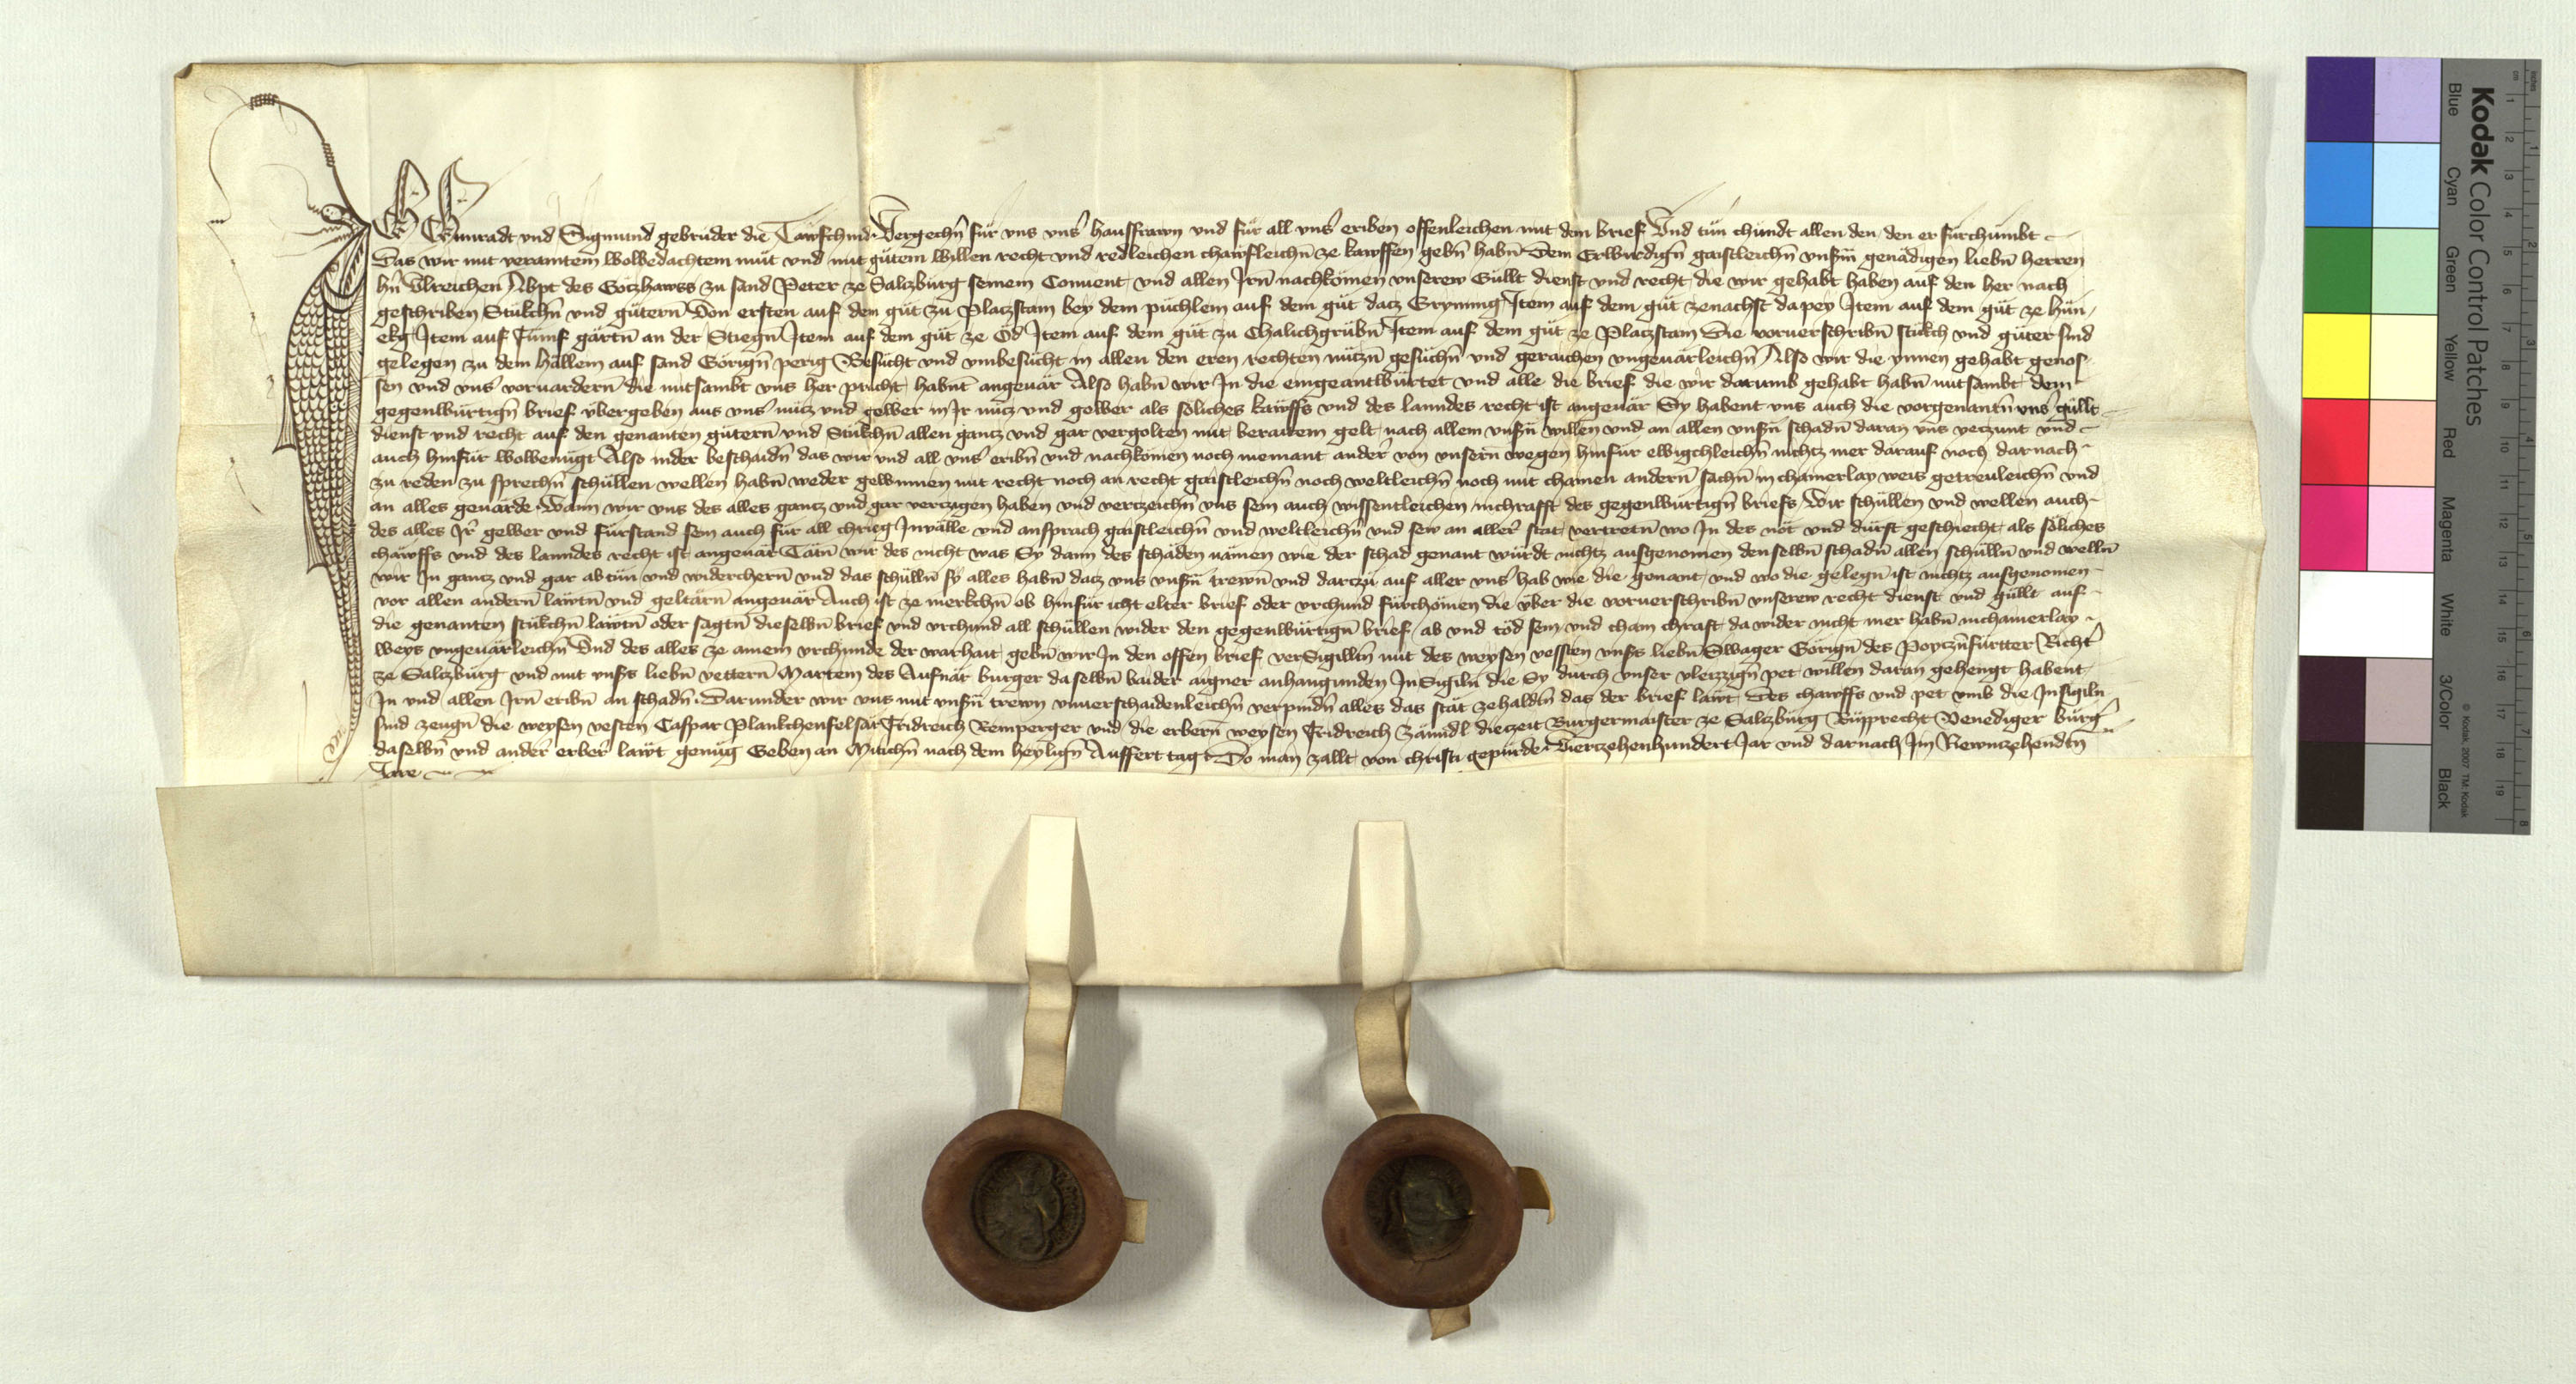 Ich Chunradt vnd Sigmund gebruder die Tawfchind Vergechn̄ für vns vns' hausfrawn vnd für all vns' eriben offenleichen mit dem brief Vnd tůn chündt allen den, den er fürchumbt
Das wir mit veraintem wolbedachtem můt vnd mit gůtem willen recht vnd redleichen chawfleichn̄ ze kawffen gebn̄ habn̄ Dem Erwirdign̄ gaistleichn̄ vnsm̄ genädigen liebn̄ herren
hn̄ Ulreichen Abpt des Gotzhawss zu sand Peter ze Salczburg seinem Conuent vnd allen Irn̄ nachkömen vnserew Güllt dienst vnd recht die wir gehabt haben auf den her nach
geschriben Stükchn̄ vnd gütern̄ Von ersten auf dem gůt zu Placzstain bey dem püchlein auf dem gůt dacz Gryning Item auf dem gůt zenachst da pey Item auf dem gůt ze hün,
ekg Item auf Fünf gärtn̄ an der Stiegn̄ Item auf dem gůt ze Öd Item auf dem gůt zu Chalichgrůbn̄ Item auf dem gůt ze Placzstain Die voruerschribn̄ stükch vnd güter sind
gelegen zu dem hällein auf sand Görign̄ perig Besücht vnd vmbesücht in allen den eren rechten nüczn̄ gesüchn̄ vnd geraichen vngeuärleichn̄ Also wir die ynnen gehabt genos-
sen vnd vns' voruardern̄ die mitsambt vns her pracht habnt angeuär Also habn̄ wir In die eingeantwürtet vnd alle die brief die wir darumb gehabt habn̄ mitsambt dem
gegenwürtign̄ brief übergeben aus vns' nücz vnd gewer in Ir nücz vnd gewer als söliches kawffs vnd des lanndes recht ist angeuär Sy habent vns auch die vorgenantn̄ vns' güllt
dienst vnd recht auf den genanten gütern̄ vnd Stükchn̄ allen gancz vnd gar vergolten mit beraitem gelt nach allem vnsm̄ willen vnd an allen vnsn̄ schadn̄ daran vns yeczunt vnd
auch hinfür wolbenügt Also in der beschaidn̄ das wir vnd all vns' eribn̄ vnd nachkömen noch niemant ander von vnsern wegen hinfür ewigchleichn̄ nichtz mer darauf noch darnach
zu reden zu sprechn̄ schüllen wellen habn̄ weder gewinnen mit recht noch an recht gaistleichn̄ noch weltleichn̄ noch mit chainen andern̄ sachn̄ in chainerlay weis getreuleichn̄ vnd
an alles geuärde Wann wir vns des alles gancz vnd gar verczigen haben vnd verczeichn̄ vns sein auch wissentleichen in chrafft des gegenwürtign̄ briefs Wir schüllen vnd wellen auch
des alles Ir' gewer vnd fürstand sein auch für all chrieg Inuälle vnd ansprach gaistleichn̄ vnd weltleichn̄ vnd sew an aller stat vertretn̄ wo In des not vnd durft geschiecht als söliches
chawffs vnd des lanndes recht ist angeuär Tätn̄ wir des nicht was Sy dann des schaden nämen wie der schad genant würdt nichtz ausgenomen denselbn̄ schadn̄ allen schülln̄ vnd welln̄
wir In gancz vnd gar ab tün vnd widerchern̄ vnd das schülln̄ sy alles habn̄ dacz vns vnsm̄ trewn̄ vnd darczü auf aller vns' hab wie die genant vnd wo die gelegn̄ ist nichtz ausgenomen
vor allen andern̄ läwtn̄ vnd geltärn̄ angeuär Auch ist ze merkchn̄ ob hinfür icht elter brief oder vrchund fürchömen die über die voruerschribn̄ vnserew recht dienst vnd güllt auf
die genanten stükchn̄ läwtn̄ oder sagtn̄ dieselbn̄ brief vnd vrchund all schüllen wider den gegenwürtign̄ brief ab vnd töd sein vnd chain chraft da wider nicht mer habn̄ in chainerlay
weys vngeuärleichn̄ Vnd des alles ze ainem vrchunde der warhait gebn̄ wir In den offen brief verSigilltn̄ mit des weysen vessten vnss liebn̄ Swager Görign̄ des Poyczn̄fürtter Richt'
ze Salczburg vnd mit vnss liebn̄ vettern̄ Martein des Aufnär burger daselbn̄ baider aigner anhangunden InSigiln̄ die Sy durch vnser vleizzign̄ pet willen daran gehengt habent
In vnd allen Irn̄ eribn̄ an schadn̄ Darunder wir vns mit vnsn̄ trewn vnuerschaidenleichn̄ verpindn̄ alles das stät zehaldn̄ das der brief läwt Des chawffs vnd pet vmb die Insigiln
sind zeugn̄ die weysen vesten Caspar Plankchenfelsär Fridreich Remperger vnd die erbern̄ weysen Fridreich Zäundl die zeit Burgermaister ze Salczburg Ruepprecht Venediger burg'
daselbn̄ vnd ander erber läwt genüg Geben an Mitichn̄ nach dem heylign̄ Auffert tag Do man zallt von christi gepürde Vierczehenhundert Jar vnd darnach Im Newnczehendtn̄
Jare
Kodak Color Control Patches
© Kodak, 2007 TM: Kodak
Blue Cyan Green Yellow Red Magenta White 3/Color Black
cm 1 2 3 4 5 6 7 8 9 10 11 12 13 14 15 16 17 18 19
inches 1 2 3 4 5 6 7 8